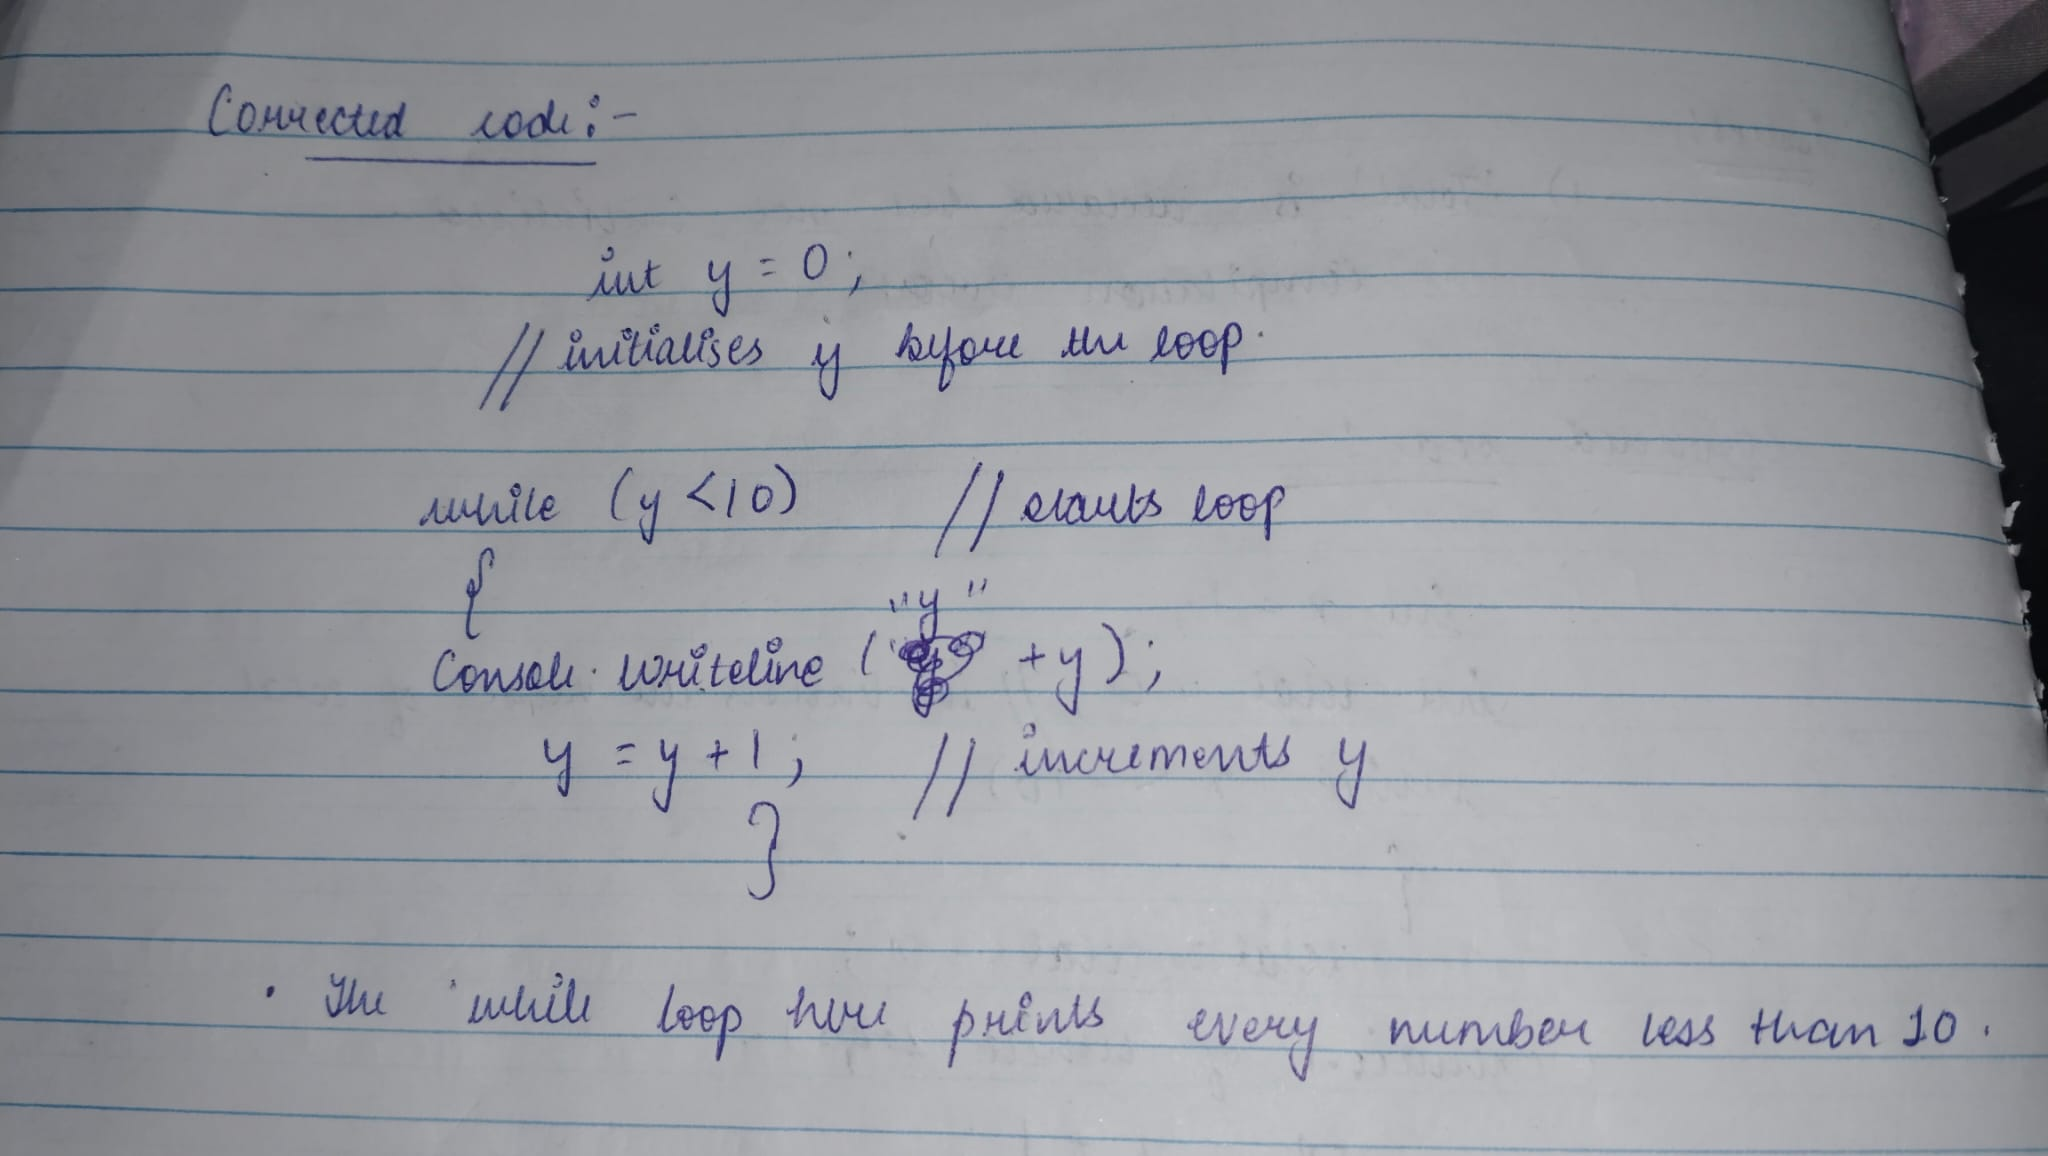 Corrected code:-
int y = 0;
// initialises y before the loop.
while (y <10) // starts loop
{
"y"
Console.Writeline ( +y);
y = y +1; // increments y
}
• The while loop here prints every number less than 10.